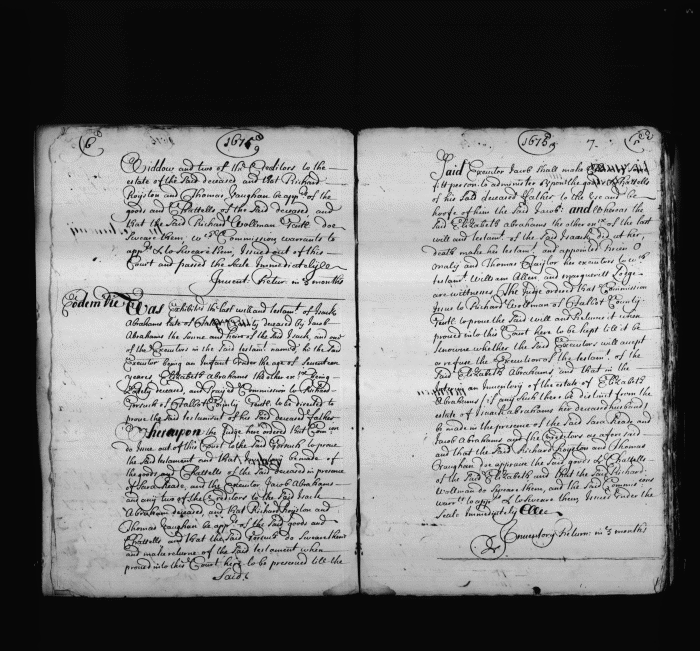 6
1676
Widdow and two of the Creditors to the
estate of the said deceased and that Richard
Royston and Thomas Vaughan be appd of the
goods and Chattells of the said deceased and
that the said Richard Wollman Gentl doe
sweare them, wch Commission warrants to
appd & to sweare them, issued out of this
Court and passed the Seale immediately
Invent: Retur: in 3 months
Eodem Die Was exhibited the last will and testamt of Isaack
Abrahams late of County deceased by Jacob
Abrahams the sonne and heire of the said Isaack, and one
of the Executors in the said testamt named, he the said
Executor being an Infant under the age of seventeen
yeares Elizabeth Abrahams the other exrx being
lately deceased, and prayed Commission to Richard
of Talbott County Gentl to be directed to
prove the said testament of the said deceased father
Whereupon the Judge have ordered that Comon
do issue out of this Court to the said to prove
the said testament and that Inventory be made of
the goods and Chattells of the said deceased in presence
of Sara Reade, and the Executor Jacob Abrahams
and any two of the Creditors to the said Isaack
Abraham deceased, and that Richard Royston and
Thomas Vaughan be appd of the said goods and
Chattells and that the said do sweare them
and make returne of the said testament when
proved into this Court here to be preserved till the
Said
1676
7
Said Executor Jacob shall make
fitt person to administer upon the goods & Chattells
of his said deceased father to the use and be
hoofe of him the said Jacob: and whereas the
said Elizabeth Abrahams the other exrx of the last
will and testamt of the said Isaack did at her
death make her testamt and appointed
and Thomas Taylor her executors to wch
testamt William Allen and Margarett Lodge
are wittnesses The Judge ordered that Commission
issue to Richard Woollman of Talbott County
Gentl to prove the said will and Returne it when
proved into this Court here to be kept till it be
knowne whether the said Executors will accept
or refuse the Execution of the testamt of the
said Elizabeth Abrahams and that in the
interim an Inventory of the estate of Elizabeth
Abrahams (if any such there be distinct from the
estate of Isaack Abrahams her deceased husband)
be made in the presence of the said Sara Reade and
Jacob Abrahams and the Creditors as afore said
and that the said Richard Royston and Thomas
Vaughan doe appraise the said goods & Chattells
of the said Elizabeth and that the said Richard
Wollman do sweare them, and the said Commissions
warrt to appd & to sweare them Issued under the
Seale Immediately
Inventory Return: in 3 months